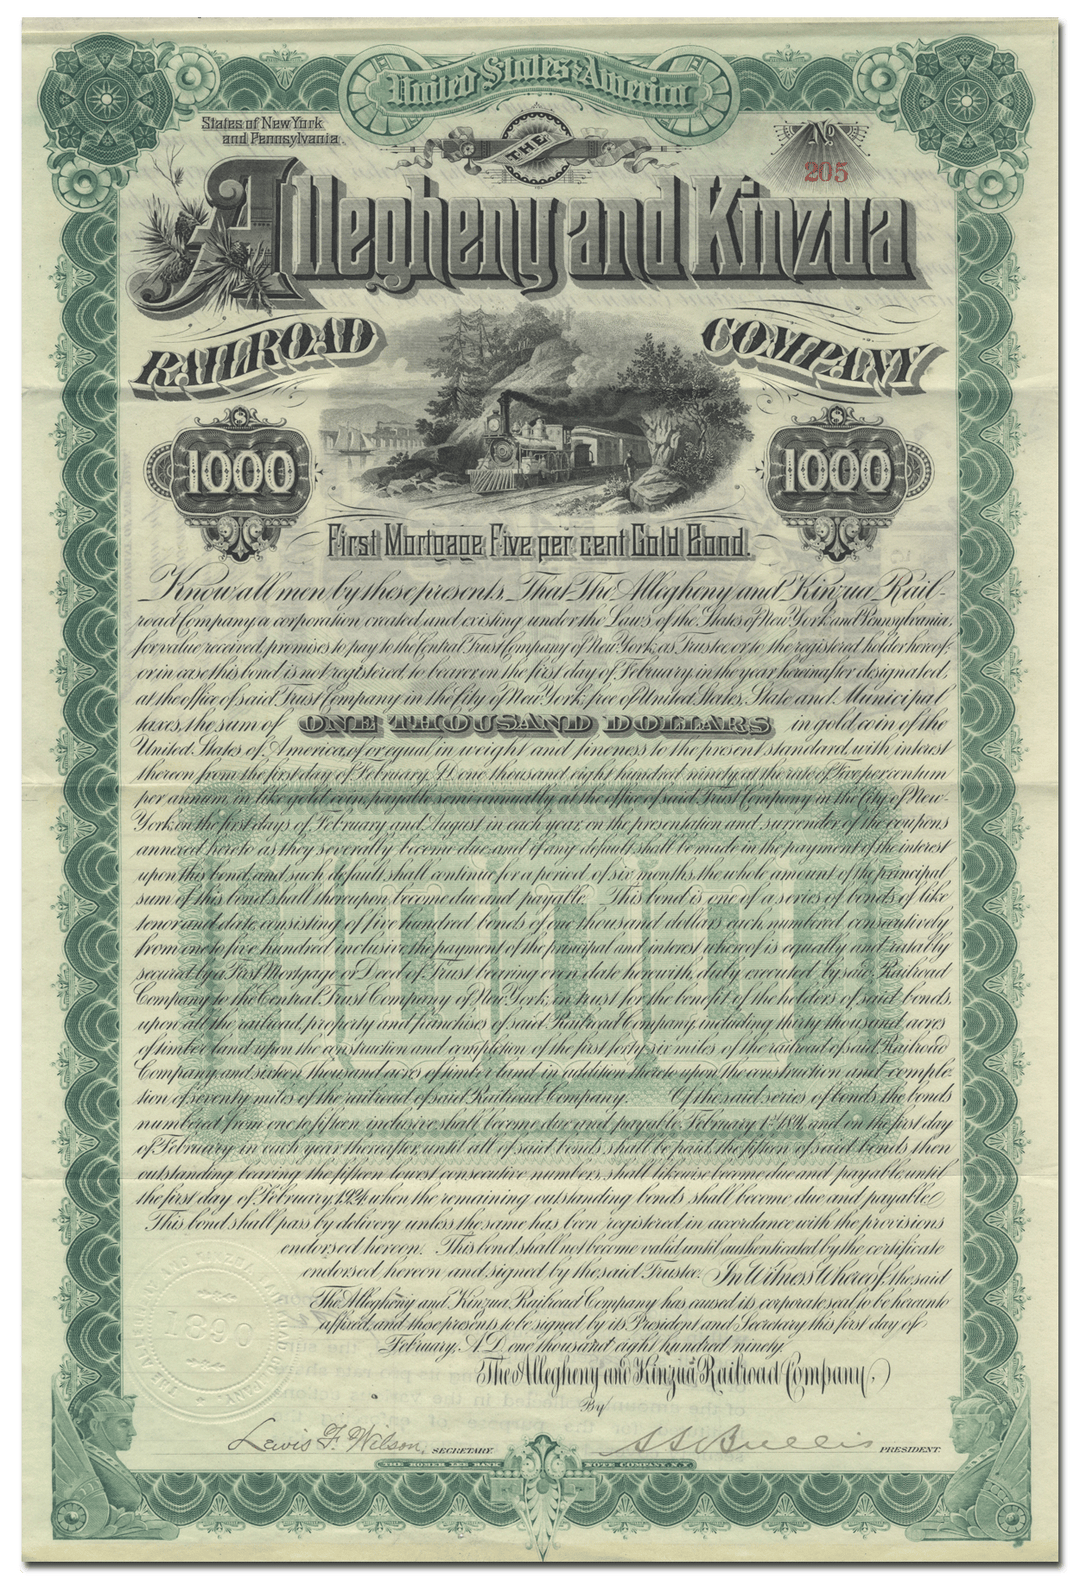 United States of America
States of New York
and Pennsylvania.
THE
No.
205
Allegheny and Kinzua
RAILROAD COMPANY
$ $
1000 1000
First Mortgage Five per cent Gold Bond.
Know all men by these presents, That The Allegheny and Kinzua Rail-
road Company a corporation created and existing under the Laws of the States of New York and Pennsylvania,
for value received, promises to pay to the Central Trust Company of New York, as Trustee or to the registered holder hereof
or in case this bond is not registered, to bearer, on the first day of February in the year hereinafter designated,
at the office of said Trust Company in the City of New York, free of United States, State and Municipal
taxes, the sum of ONE THOUSAND DOLLARS in gold coin of the
United States of America, of or equal in weight and fineness to the present standard, with interest
thereon from the first day of February A.D. one thousand eight hundred ninety, at the rate of Five per centum
per annum, in like gold coin, payable semi annually at the office of said Trust Company in the City of New-
York, on the first days of February and August in each year, on the presentation and surrender of the coupons
annexed hereto as they severally become due, and if any default shall be made in the payment of the interest
upon this bond, and such default shall continue for a period of six months, the whole amount of the principal
sum of this bond shall thereupon become due and payable. This bond is one of a series of bonds of like
tenor and date consisting of five hundred bonds of one thousand dollars each, numbered consecutively
from one to five hundred inclusive, the payment of the principal and interest whereof is equally and ratably
secured by a First Mortgage or Deed of Trust bearing even date herewith, duly executed by said Railroad
Company to the Central Trust Company of New York, in trust for the benefit of the holders of said bonds,
upon all the railroad, property and franchises of said Railroad Company, including thirty thousand acres
of timber land upon the construction and completion of the first forty six miles of the railroad of said Railroad
Company, and sixteen thousand acres of timber land in addition thereto upon the construction and comple-
tion of seventy miles of the railroad of said Railroad Company. Of the said series of bonds the bonds
numbered from one to fifteen inclusive shall become due and payable February 1st 1891, and on the first day
of February in each year thereafter, until all of said bonds shall be paid, the fifteen of said bonds then
outstanding bearing the fifteen lowest consecutive numbers, shall likewise become due and payable, until
the first day of February, 1924, when the remaining outstanding bonds shall become due and payable.
This bond shall pass by delivery unless the same has been registered in accordance with the provisions
endorsed hereon. This bond shall not become valid until authenticated by the certificate
endorsed hereon and signed by the said Trustee. In Witness Whereof, the said
The Allegheny and Kinzua Railroad Company has caused its corporate seal to be hereunto
affixed, and these presents to be signed by its President and Secretary this first day of
February, A.D. one thousand eight hundred ninety.
The Allegheny and Kinzua Railroad Company,
By
1890
Lewis F. Wilson, SECRETARY. S S Bullis PRESIDENT.
THE HOMER LEE BANK NOTE COMPANY. N.Y.